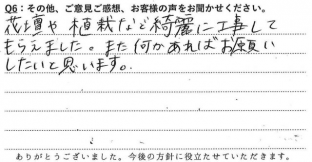 Q6：その他、ご意見ご感想、お客様の声をお聞かせください。
花壇や植栽など綺麗に工事して
もらえました。また何かあればお願い
したいと思います。
ありがとうございました。今後の方針に役立たせていただきます。